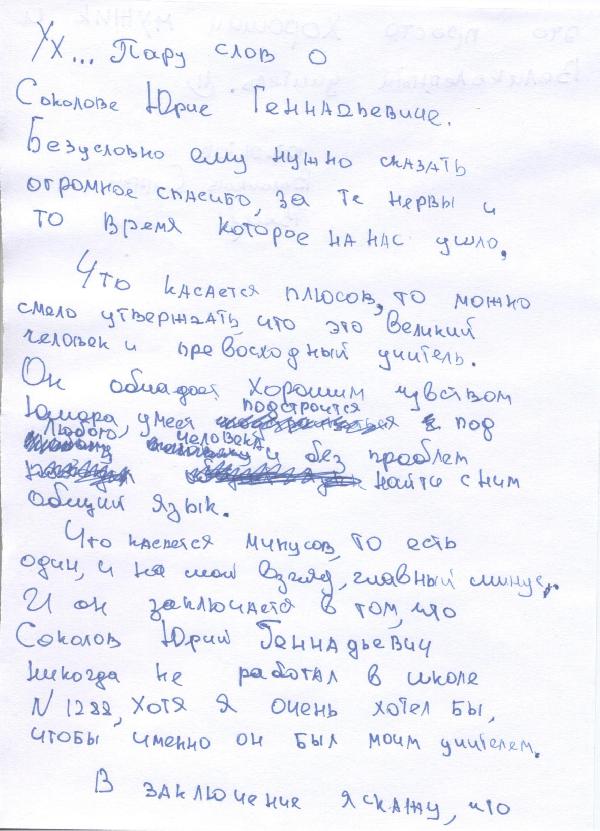 Ух... Пару слов о
Соколове Юрие Геннадьевиче.
Безусловно ему нужно сказать
огромное спасибо, за те нервы и
то время которое на нас ушло.
Что касается плюсов, то можно
смело утверждать, что это Великий
человек и превосходный учитель.
Он обладает хорошим чувством
юмора, умеея подстроится под
любого человека и без проблем
найти с ним
общий язык.
Что касается минусов, то есть
один, и на мой взгляд, главный минус.
И он заключается в том, что
Соколов Юрий Геннадьевич
никогда не работал в школе
N 1288, хотя я очень хотел бы,
чтобы именно он был моим учителем.
В заключение я скажу, что